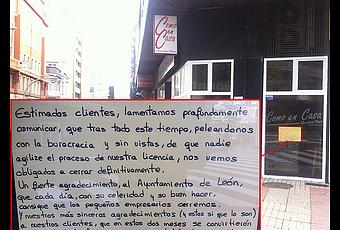 Como
en
Casa
Como en Casa
Estimados clientes, lamentamos profundamente
comunicar, que tras todo este tiempo, peleandonos
con la burocracia y sin vistas, de que nadie
agilize el proceso de nuestra licencia, nos vemos
obligados a cerrar definitivamente.
Un fuerte agradecimiento, al Ayuntamiento de León,
que cada día, con su celeridad y su buen hacer,
consigue que los pequeños empresarios cerremos.
Y nuestros más sinceros agradecimientos (y estos si que lo son)
a nuestros clientes, que en estos dos meses se convirtierón